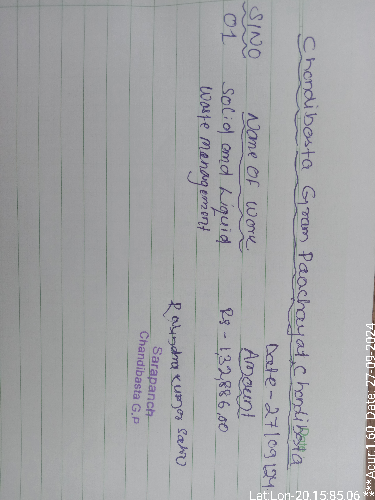 Chandibasta Gram Paachayat, Chandibasta
Date - 27/09/24
SlNo Name OF Work Amount
01 Solid and Liquid Rs - 1,32,886.00
Waste Management
Kumar Sahu
Sarapanch
Chandibasta G.P
Lat Lon-20 15 85.06
***Acur:1.60 Date: 27-09-2024